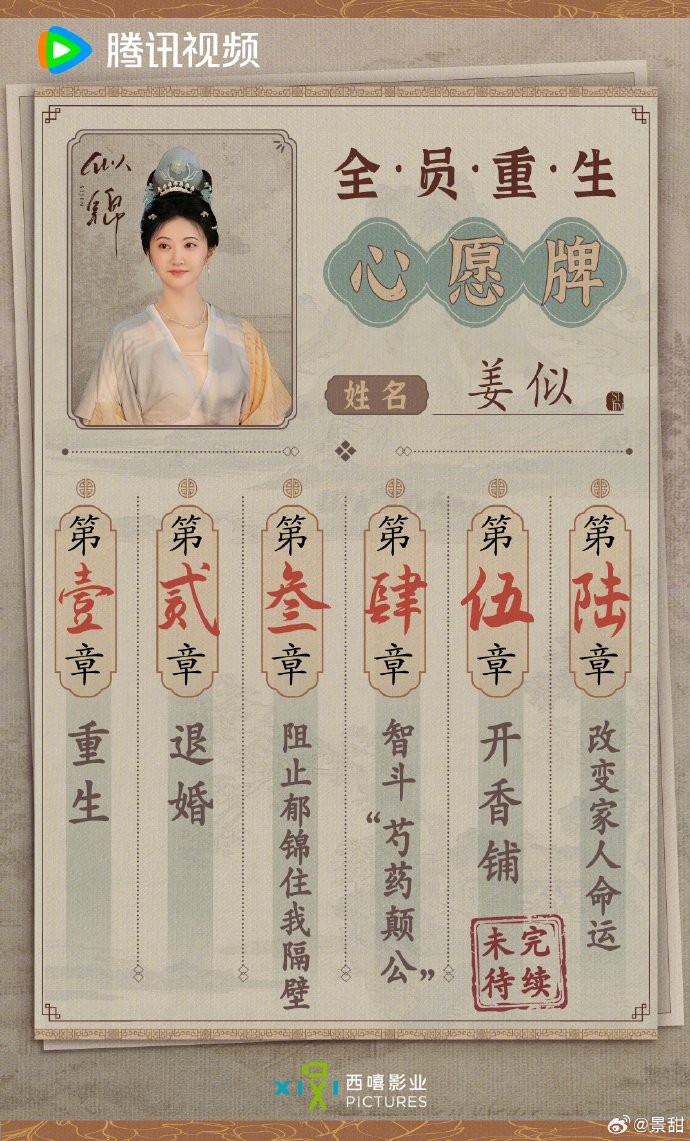 腾讯视频
似锦
SI JIN
全·员·重·生
心愿牌
姓名
姜似
第壹章
重生
第贰章
退婚
第叁章
阻止郁锦住我隔壁
第肆章
智斗“芍药颠公”
第伍章
开香铺
第陆章
改变家人命运
未完
待续
XIXI
西嘻影业
PICTURES
@景甜